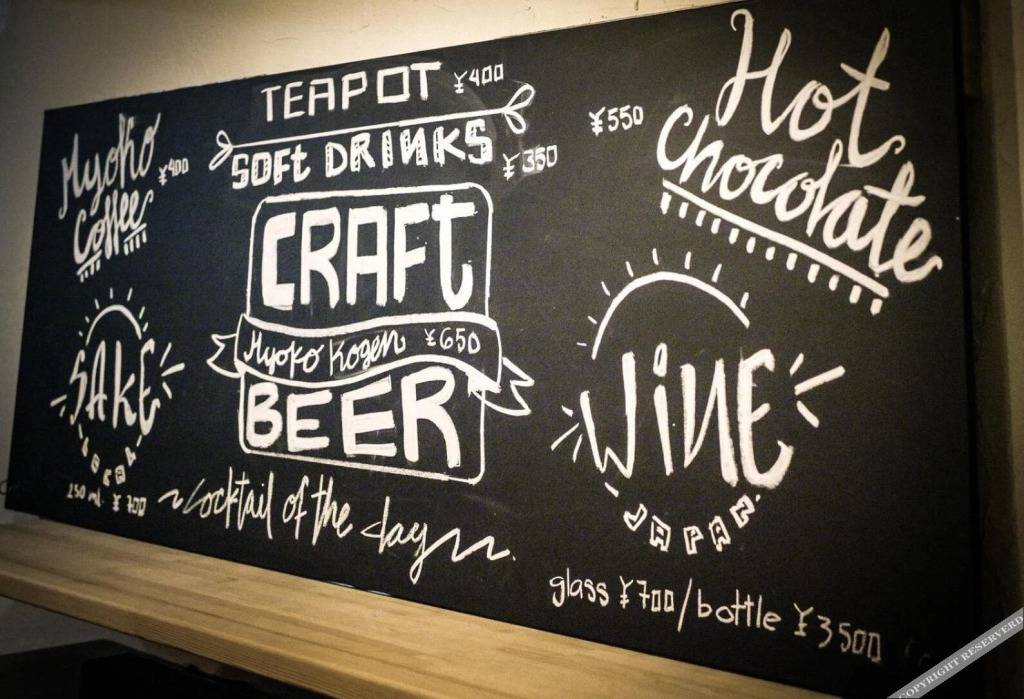 Myoko
Coffee
¥400
TEAPOT ¥400
SOFT DRINKS ¥350
CRAFT
Myoko Kogen ¥650
BEER
¥550
Hot
Chocolate
SAKE
LOCAL
250 ml. ¥700
~cocktail of the day
WINE
JAPAN
glass ¥700/bottle ¥3500
COPYRIGHT RESERVERD